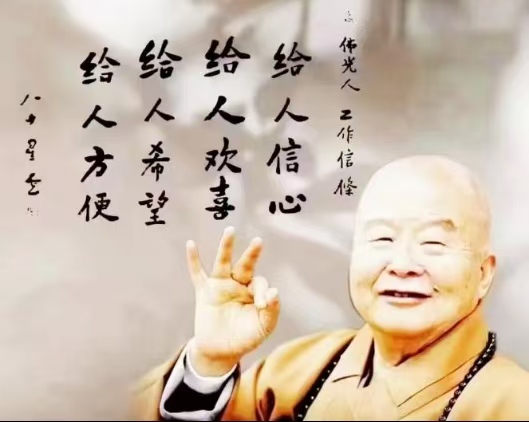 佛光人 工作信條
给人信心
给人欢喜
给人希望
给人方便
八十星云